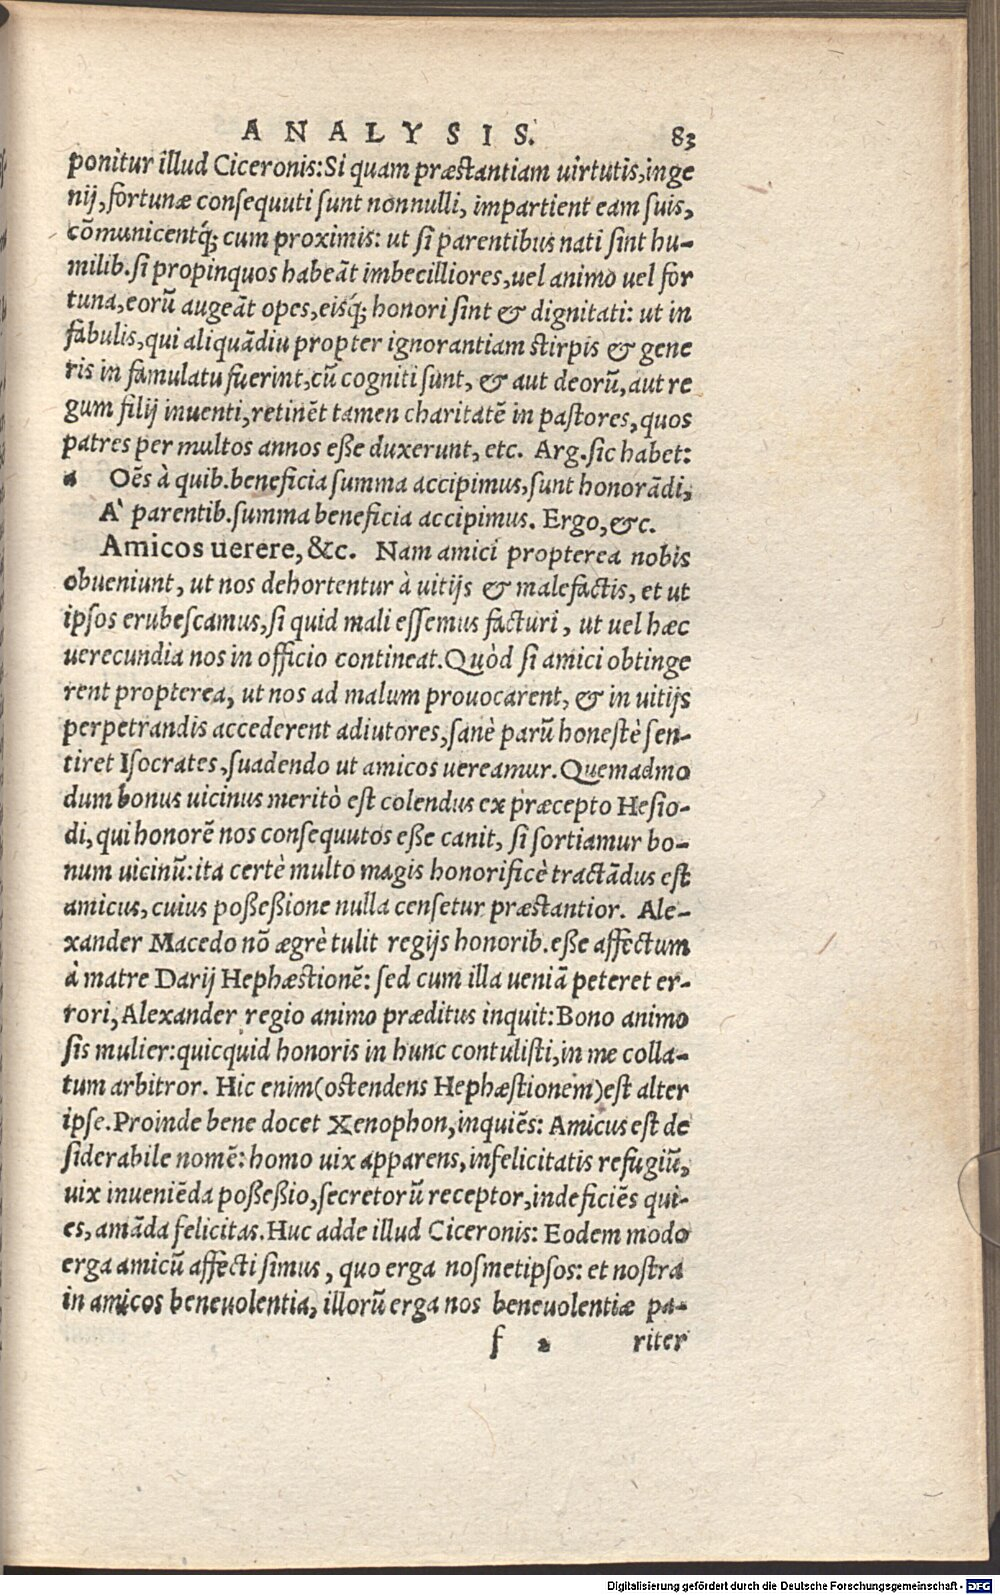 ANALYSIS. 83
ponitur illud Ciceronis: Si quam præstantiam uirtutis, inge
nij, fortunæ consequuti sunt nonnulli, impartient eam suis,
cõmunicentq́; cum proximis: ut si parentibus nati sint hu-
milib. si propinquos habeãt imbecilliores, uel animo uel for
tuna, eorũ augeãt opes, eisq́; honori sint & dignitati: ut in
fabulis, qui aliquãdiu propter ignorantiam stirpis & gene
ris in famulatu fuerint, cũ cogniti sunt, & aut deorũ, aut re
gum filij inuenti, retinẽt tamen charitatẽ in pastores, quos
patres per multos annos eße duxerunt, etc. Arg. sic habet:
a Oẽs à quib. beneficia summa accipimus, sunt honorãdi,
A' parentib. summa beneficia accipimus. Ergo, &c.
Amicos uerere, &c. Nam amici propterea nobis
obueniunt, ut nos dehortentur à uitijs & malefactis, et ut
ipsos erubescamus, si quid mali essemus facturi, ut uel hæc
uerecundia nos in officio contineat. Quòd si amici obtinge
rent propterea, ut nos ad malum prouocarent, & in uitijs
perpetrandis accederent adiutores, sanè parũ honestè sen-
tiret Isocrates, suadendo ut amicos uereamur. Quemadmo
dum bonus uicinus meritò est colendus ex præcepto Hesio-
di, qui honorẽ nos consequutos eße canit, si sortiamur bo-
num uicinũ: ita certè multo magis honorificè tractãdus est
amicus, cuius poßeßione nulla censetur præstantior. Ale-
xander Macedo nõ ægrè tulit regijs honorib. eße affectum
à matre Darij Hephæstionẽ: sed cum illa ueniã peteret er-
rori, Alexander regio animo præditus inquit: Bono animo
sis mulier: quicquid honoris in hunc contulisti, in me colla-
tum arbitror. Hic enim (ostendens Hephæstionem) est alter
ipse. Proinde bene docet Xenophon, inquiẽs: Amicus est de
siderabile nomẽ: homo uix apparens, infelicitatis refugiũ,
uix inueniẽda poßeßio, secretorũ receptor, indeficiẽs qui-
es, amãda felicitas. Huc adde illud Ciceronis: Eodem modo
erga amicũ affecti simus, quo erga nosmetipsos: et nostra
in amicos beneuolentia, illorũ erga nos beneuolentiæ pa-
f 2 riter
Digitalisierung gefördert durch die Deutsche Forschungsgemeinschaft - DFG